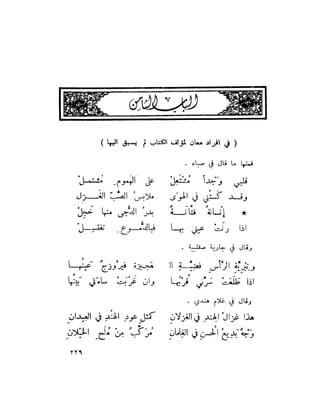 الباب الثامن
( في افراد معان لمؤلف الكتاب لم يسبق اليها )
فمنها ما قال في صباه .
قلبي وجداً مشتعل على الهموم مشتمل
وقد كستني في الهوى ملابس الصب الغزل
★ إنسانة فتانة بدر الدجى منها خجل
اذا زنت عيني بها فبالدموع تغتسل
وقال في جارية صقلبية .
وتبرية الرأس فضية ال عجيزة فيروزج عينها
اذا طلعت سرني قربها وان غربت ساءني بينها
وقال في غلام هندي .
هذا غزال الهند في الغزلان كمثل عود الهند في العيدان
وجه بديع الحسن في الغلمان مركب من ملح الخيلان
٢٢٩